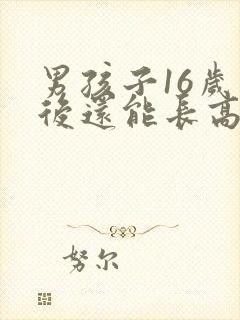 男孩子16歲
後還能長高
努尔